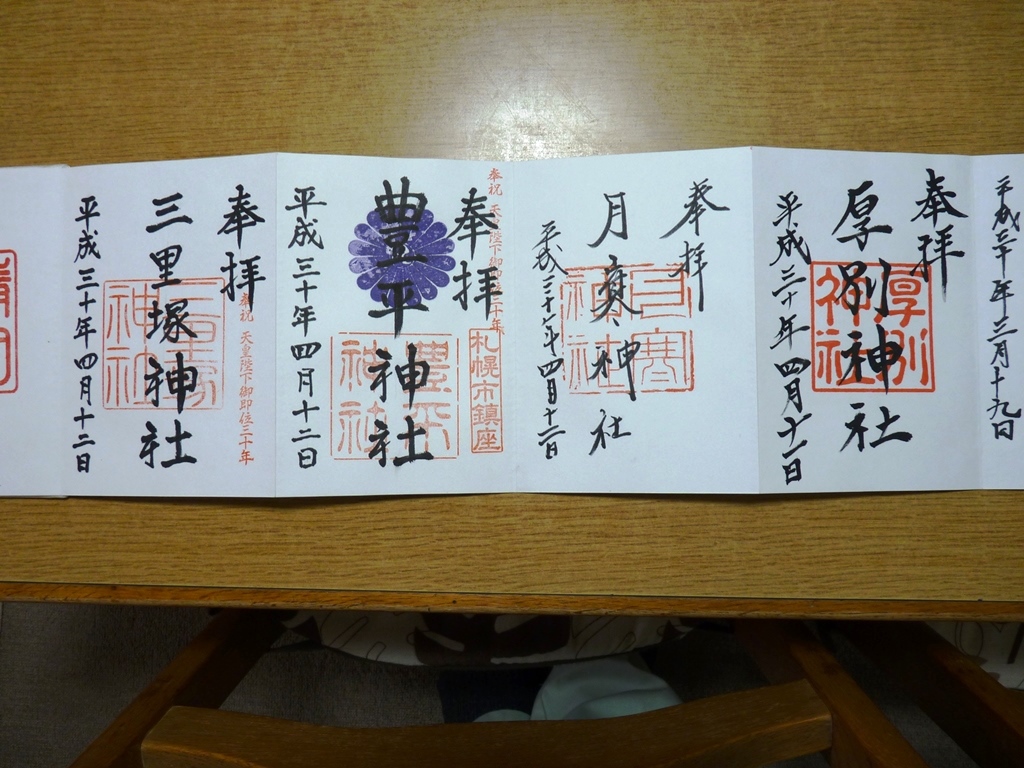 平成三十年三月十九日
奉拝
厚別神社
厚別
神社
平成三十年四月十一日
奉拝
月寒神社
月寒
神社
平成三十年四月十二日
奉祝 天皇陛下御即位三十年
奉拝
札幌市鎮座
豊平神社
豊平
神社
平成三十年四月十二日
奉拝
奉祝 天皇陛下御即位三十年
三里塚神社
三里塚
神社
平成三十年四月十二日